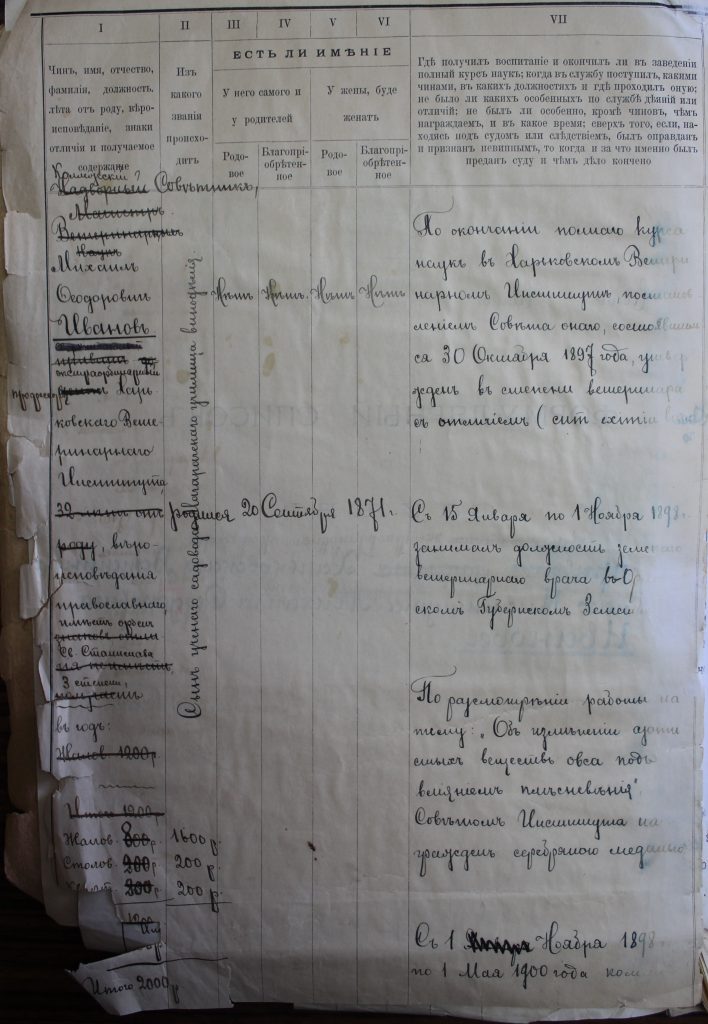 I
II
III
IV
V
VI
VII
ЕСТЬ ЛИ ИМѢНІЕ
Чинъ, имя, отчество,
фамилія, должность,
лѣта отъ роду, вѣро-
исповѣданіе, знаки
отличія и получаемое
содержаніе
Изъ
какого
званія
происхо-
дитъ
У него самого и
у родителей
У жены, буде
женатъ
Родо-
вое
Благопрі-
обрѣтен-
ное
Родо-
вое
Благопрі-
обрѣтен-
ное
Гдѣ получилъ воспитаніе и окончилъ ли въ заведеніи
полный курсъ наукъ; когда въ службу поступилъ, какими
чинами, въ какихъ должностяхъ и гдѣ проходилъ оную;
не было ли какихъ особенныхъ по службѣ дѣяній или
отличій; не былъ ли особенно, кромѣ чиновъ, чѣмъ
награждаемъ, и въ какое время; сверхъ того, если, на-
ходясь подъ судомъ или слѣдствіемъ, былъ оправданъ
и признанъ невиннымъ, то когда и за что именно былъ
преданъ суду и чѣмъ дѣло кончено
Надворный Совѣтникъ,
Магистръ
Ветеринарныхъ
Наукъ
Михаилъ
Ѳеодоровичъ
Ивановъ
экстраординарный
Харь-
ковскаго Вете-
ринарнаго
Института,
32 лѣтъ отъ родился 20 Сентября 1871 г.
роду, вѣро-
исповѣданія
православнаго,
имѣетъ орденъ
Св. Станислава
3 степени,
въ годъ:
Жалов. 1200 р.
Итого 1200 р.
Жалов. 800 р. 1600 р.
Столов. 200 р. 200 р.
200 р. 200 р.
1200
Итого 2000 р.
Сынъ ученаго садовода Магарачскаго училища винодѣлія.
Нѣтъ Нѣтъ. Нѣтъ Нѣтъ
По окончаніи полнаго курса
наукъ въ Харьковскомъ Ветери
нарномъ Институтѣ, постанов
леніемъ Совѣта онаго, состоявшим
ся 30 Октября 1897 года, утвер
жденъ въ степени ветеринара
съ отличіемъ (
Съ 15 Января по 1 Ноября 1898 г.
занималъ должность земскаго
ветеринарнаго врача въ
скомъ Губернскомъ Земст
По разсмотрѣніи работы на
тему: „Объ измѣненіи азоти
стыхъ веществъ овса подъ
вліяніемъ плѣсневѣнія“,
Совѣтомъ Института на
гражденъ серебряною медалью
Съ 1 Ноября 1898
по 1 Мая 1900 года